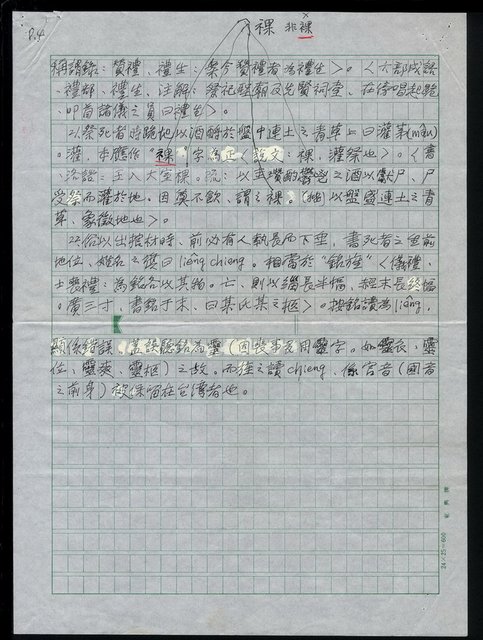 P.4
祼 非裸
稱謂錄：贊禮、禮生：案今贊禮者為禮生>。<六部成語
、禮部、禮生、注解：祭祀壇廟及先賢祠堂，在傍唱起跪
、叩首諸儀之員曰禮生>。
21祭死者時跪地以酒酹於盤中連土之青草上曰灌茅(mâu)
。灌，本應作"祼"字為正<說文：祼，灌祭也>。<書
洛誥：王入大室祼。疏：以圭瓚酌鬱鬯之酒以獻尸，尸
受祭而灌於地。因奠不飲，謂之祼。以盤盛連土之青
草，象徵地也>。
22俗以出棺材時、前必有人執長布下垂，書死者之生前
地位、姓名之旗曰liêng chieng。相當於"銘旌"<儀禮、
士喪禮：為銘各以其物。亡、則以緇長半幅，經末長終幅
。廣三寸，書銘于末，曰某氏某之柩>。按銘讀為liêng，
顯係錯誤，蓋誤聽銘為靈(因喪事衣用靈字。如靈衣、靈
位、靈爽、靈柩)之故。而旌之讀chieng、係官音(國音
之前身)被保留在台灣者也。
24×25=600